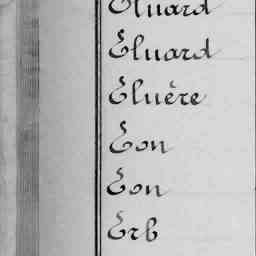 Éluard
Éluard
Éluère
Éon
Éon
Erb